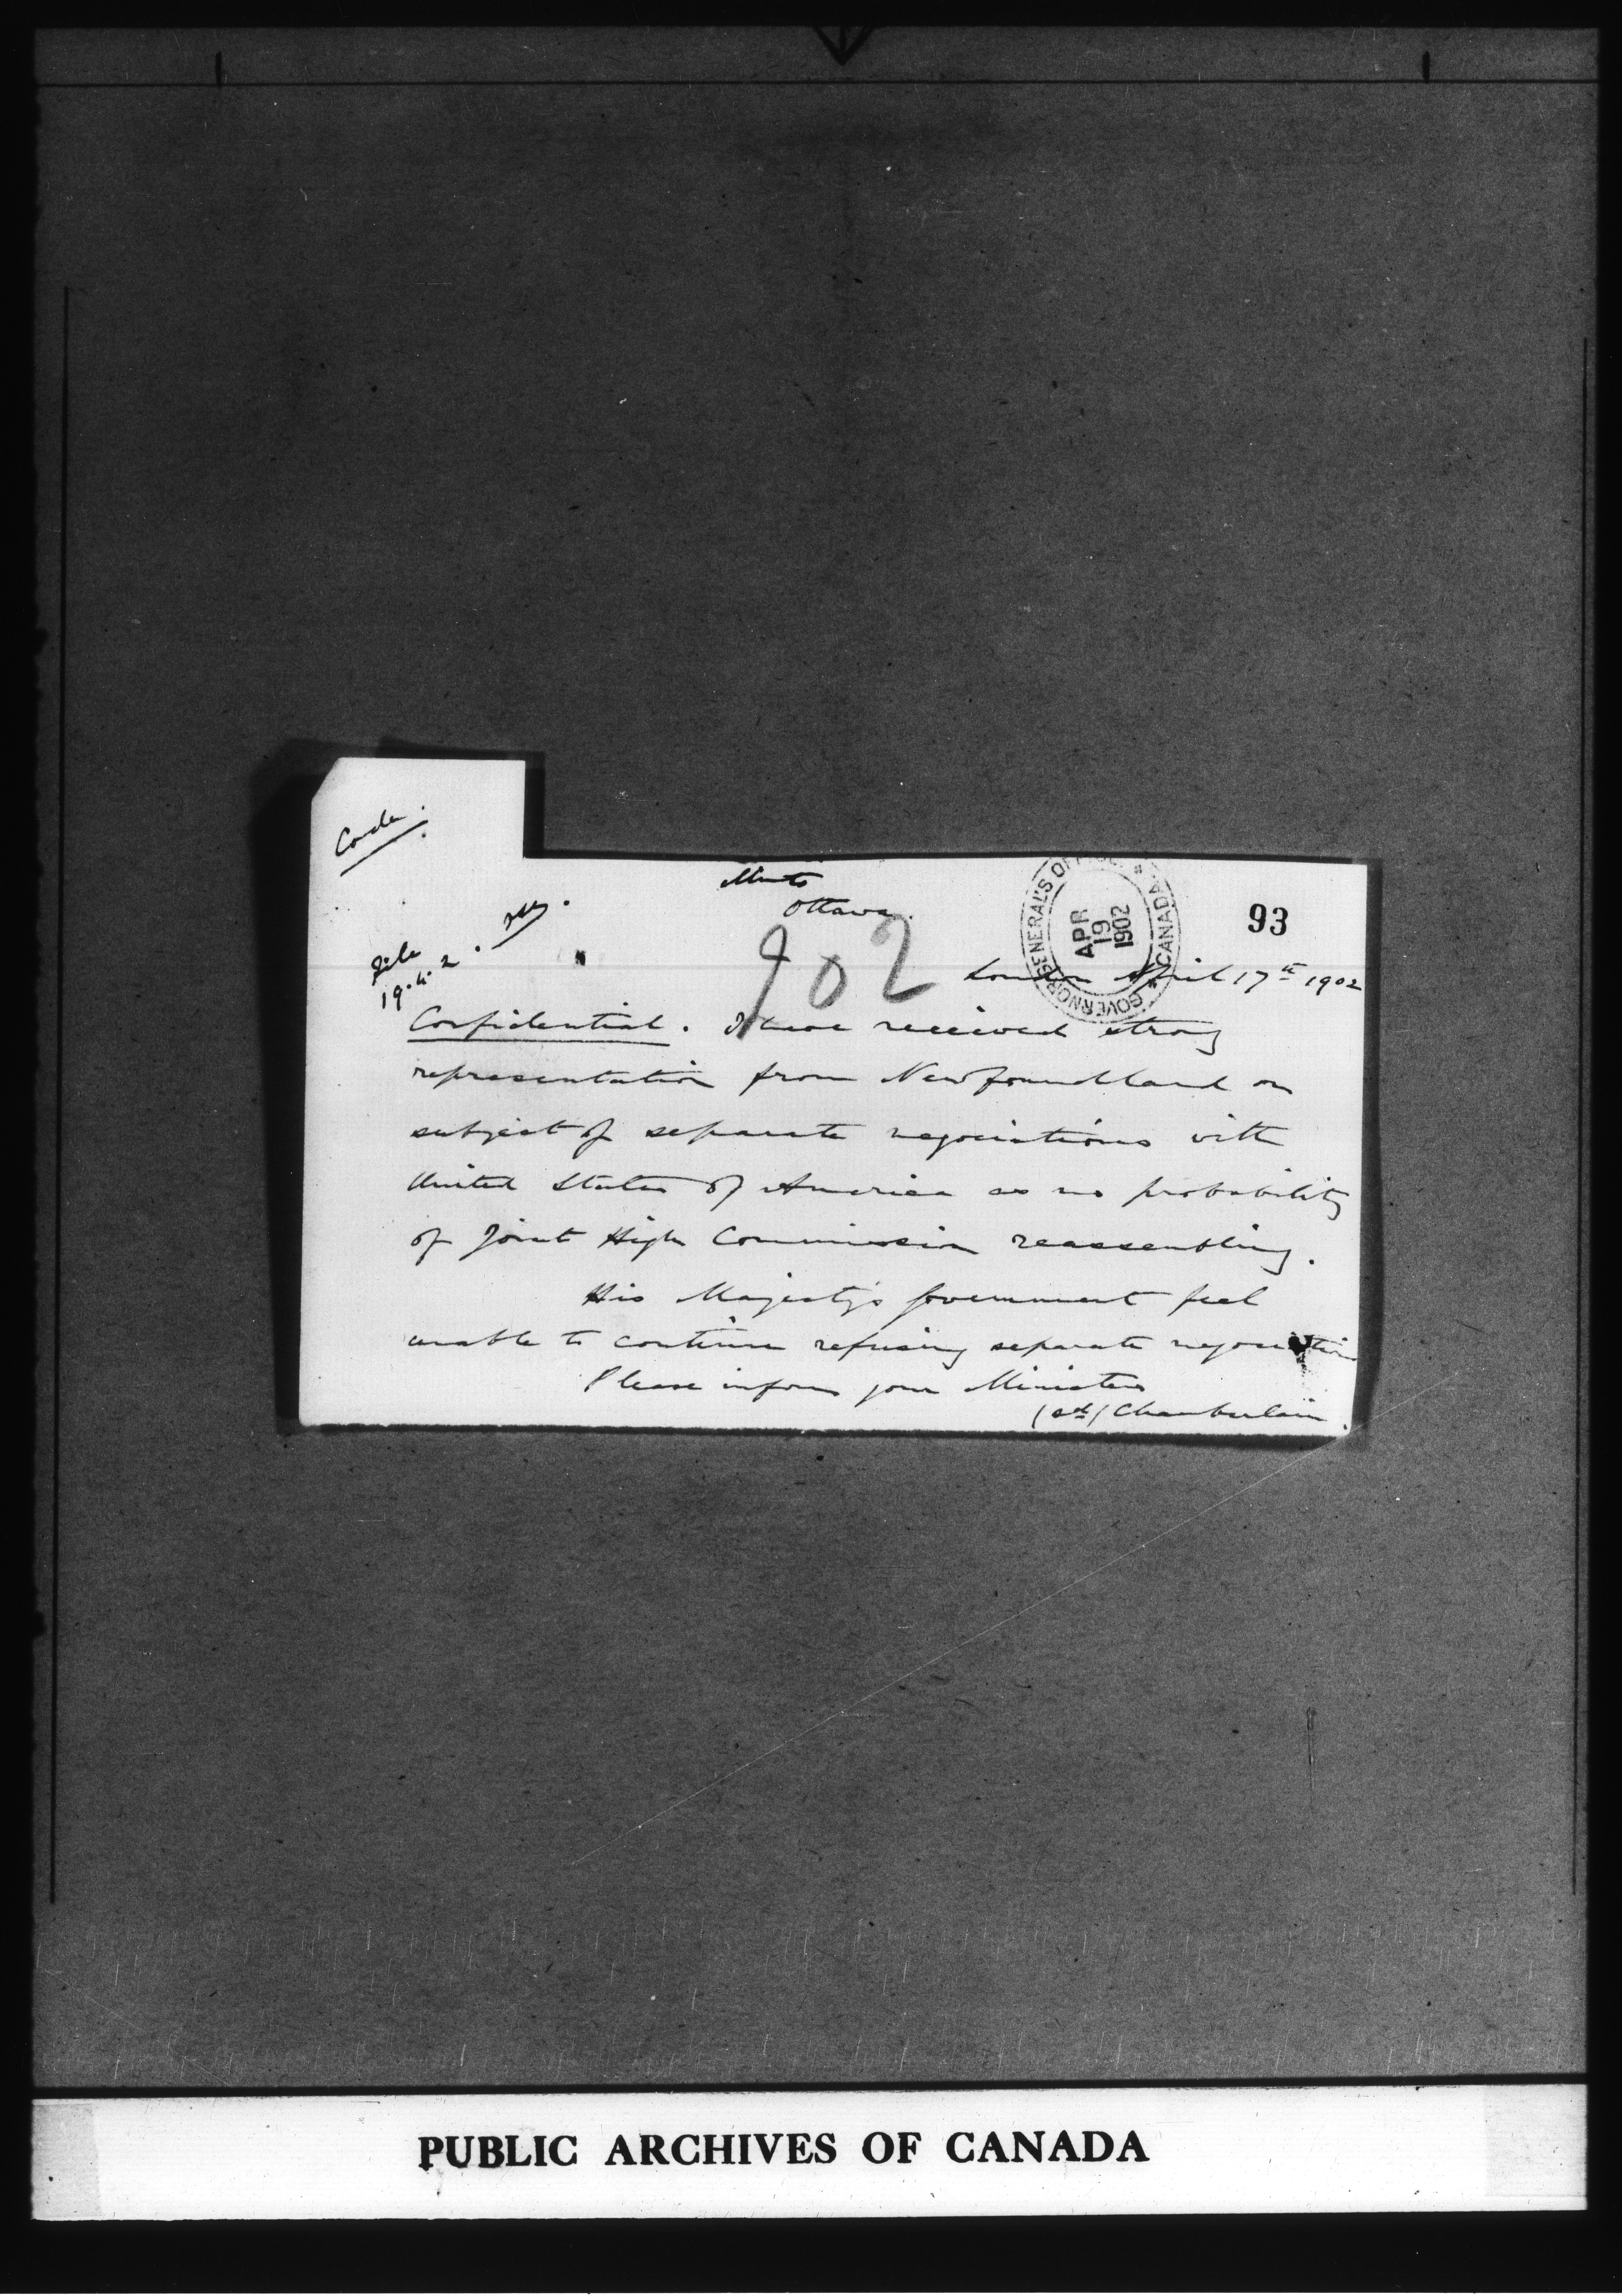 Code.
Minto
Ottawa.
File
19.4.2.
902
GOVERNOR GENERAL'S OFFICE * CANADA *
APR
19
1902
93
London April 17th 1902
Confidential. I have received strong
representation from Newfoundland on
subject of separate negociations with
United States of America as no probability
of Joint High Commission reassembling.
His Majesty's Government feel
unable to continue refusing separate negociation
Please inform your Ministers
(sd) Chamberlain.
PUBLIC ARCHIVES OF CANADA